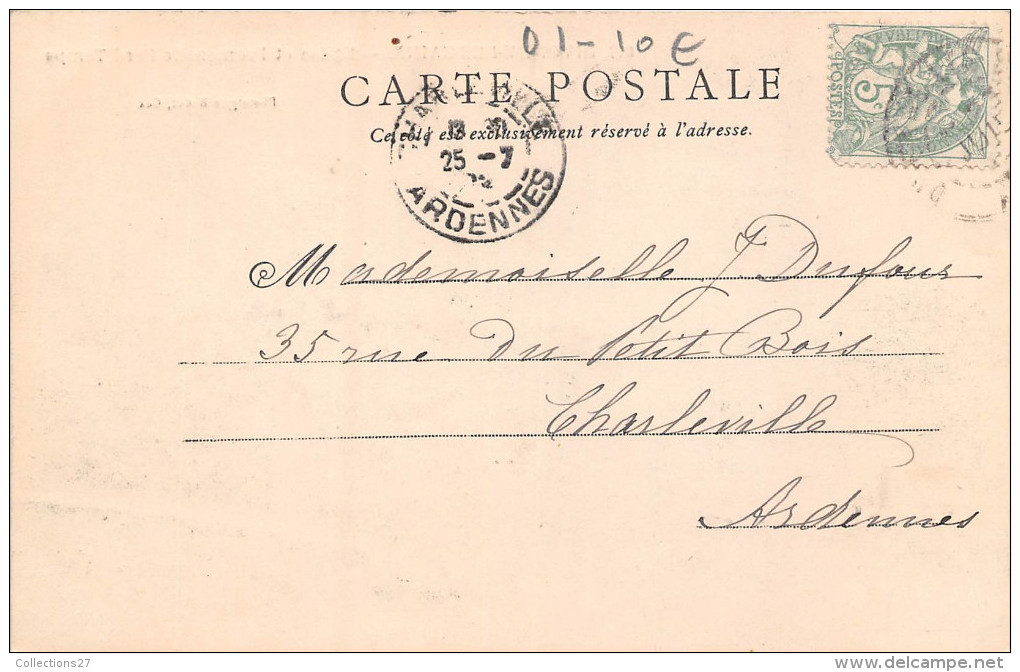 01-10€
CARTE POSTALE
Ce côté est exclusivement réservé à l'adresse.
5c
POSTES
25 -7
ARDENNES
Mademoiselle J Dufour
35 rue du Petit Bois
Charleville
Ardennes
Collections27
www.delcampe.net